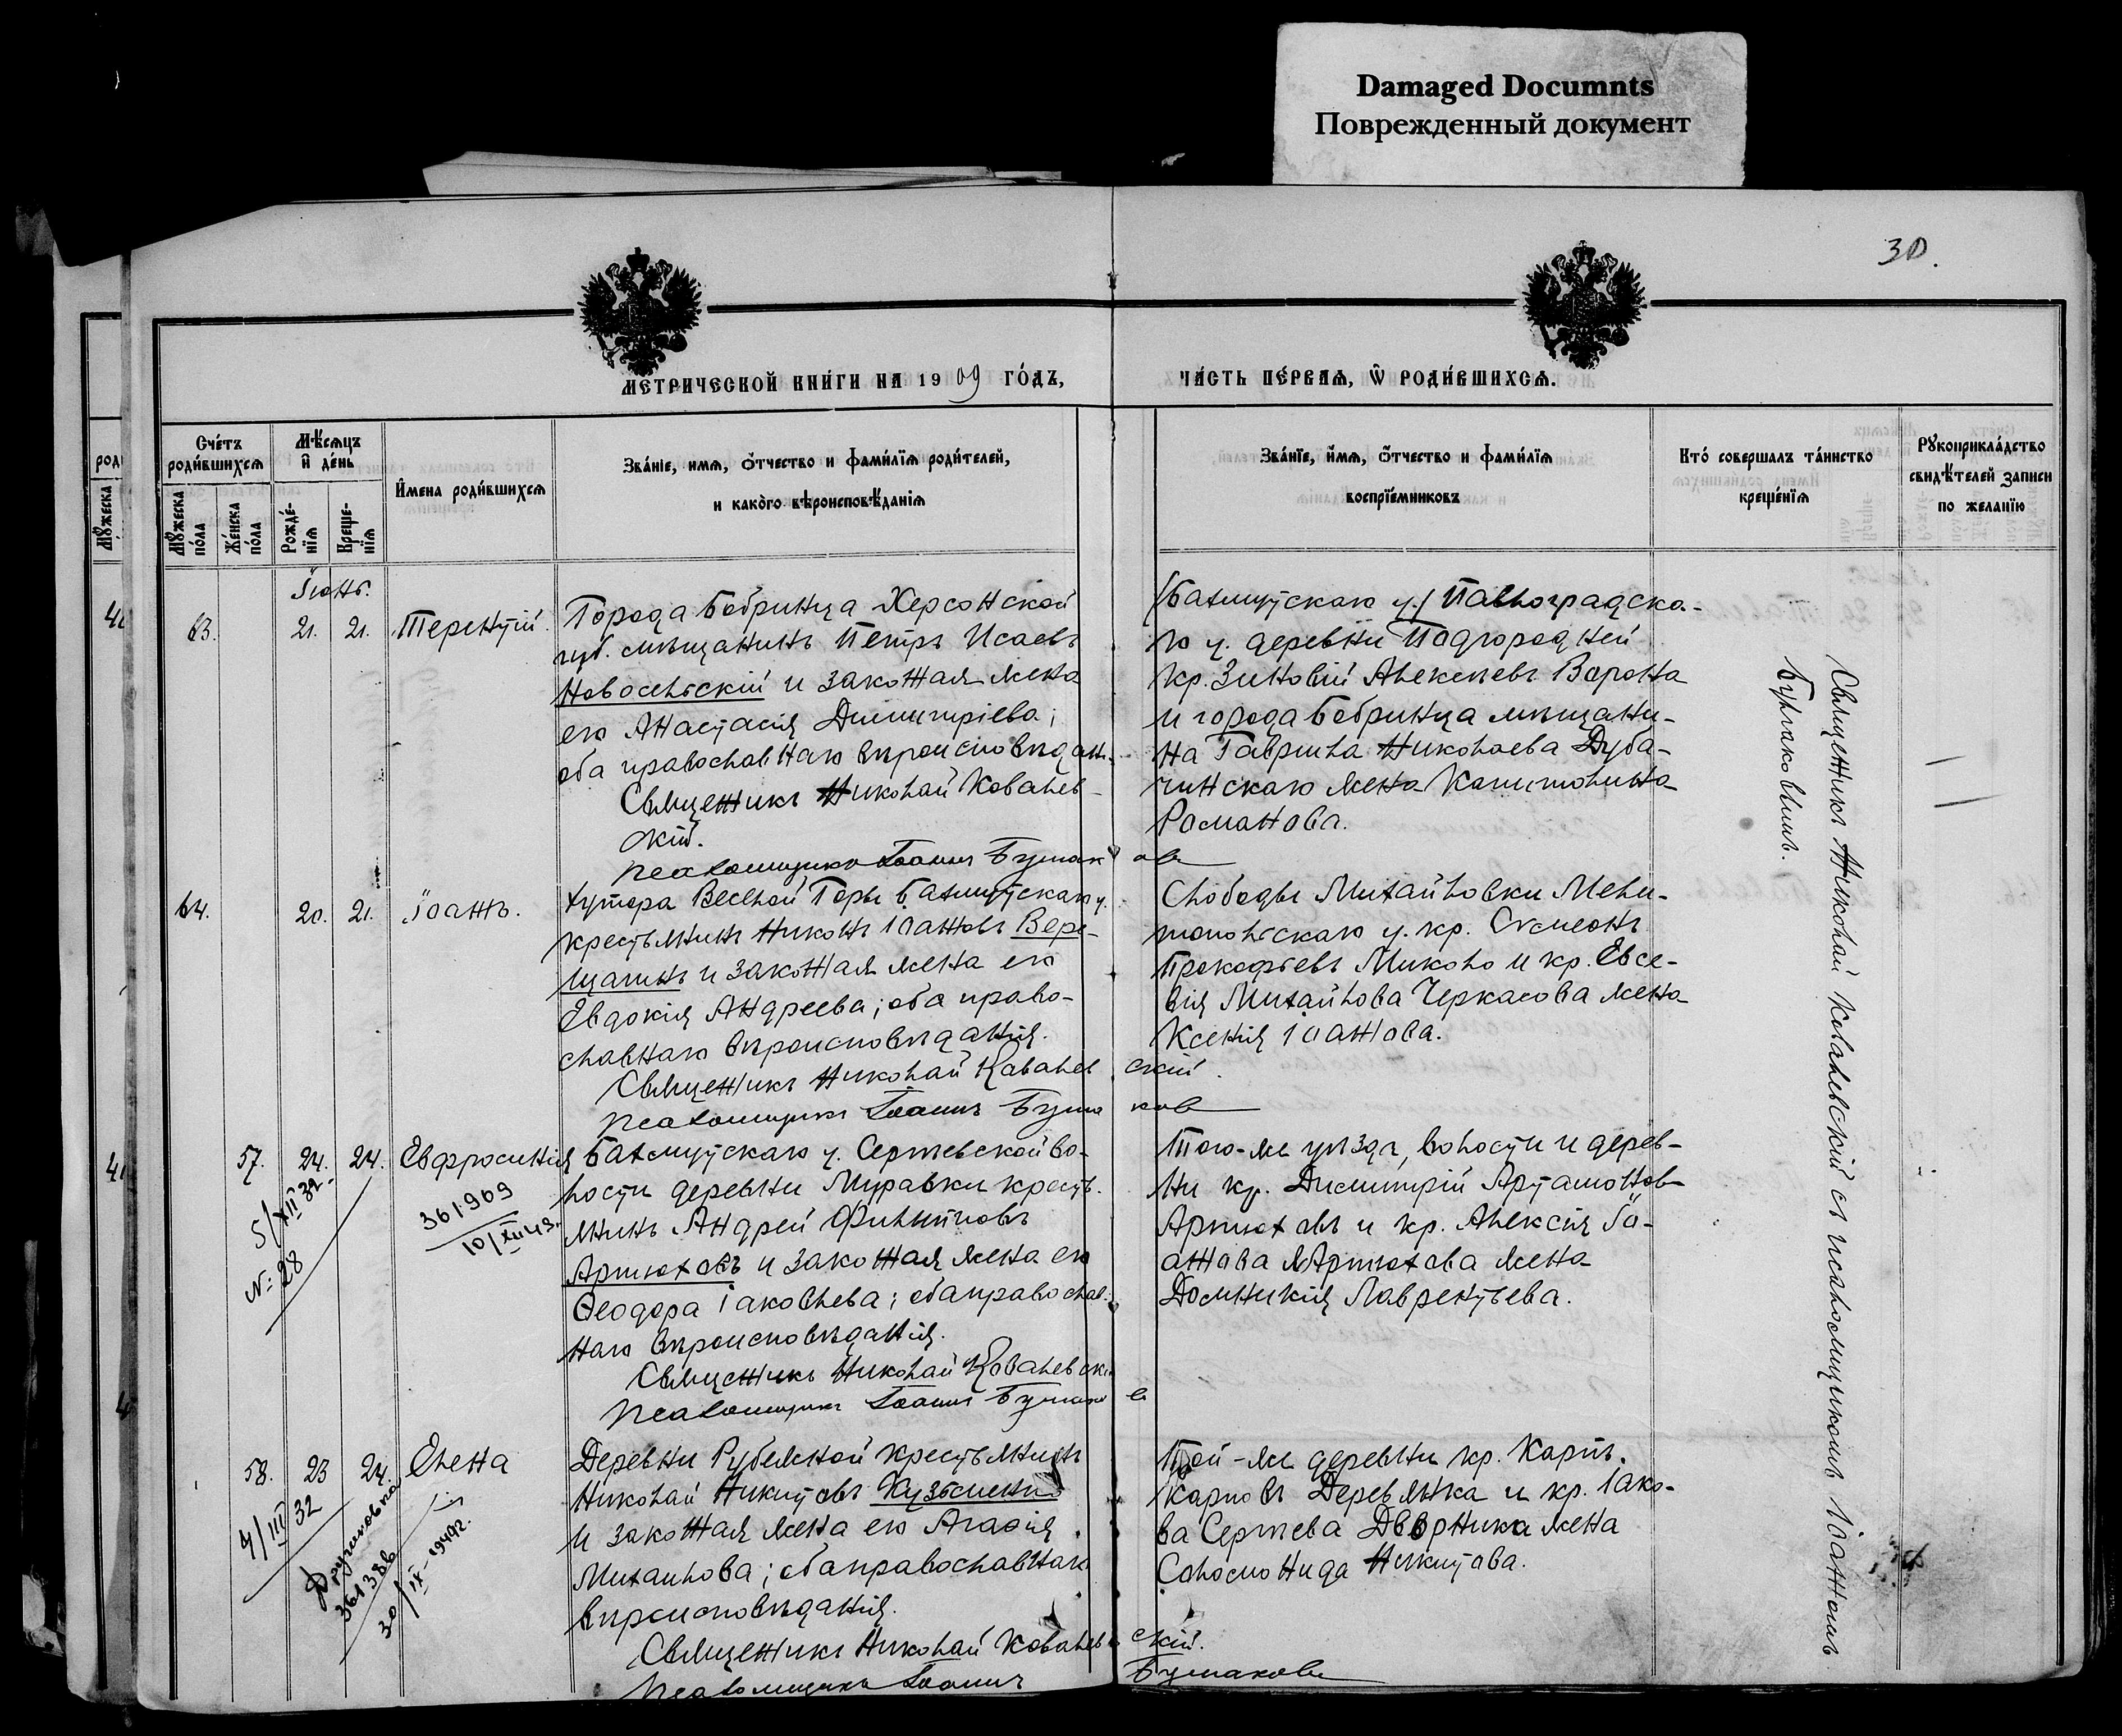 Damaged Documnts
Поврежденный документ
30.
МЕТРИЧЕСКОЙ КНИ́ГИ НА 1909 ГО́ДЪ,
ЧА́СТЬ ПЕ́РВАЯ, Ѡ҆ РОДИ́ВШИХСЯ.
Сче́тъ роди́вшихся
Му́жеска по́ла
Же́нска по́ла
Мѣ́сяцъ и҆ де́нь
Рожде́-нїя
Креще-нїя
И҆мена роди́вшихся
Зва́нїе, имя, ѻ҆́тчество и фами́лїя роди́телей,
и како́го вѣроисповѣ́данїя
Зва́нїе, и҆́мя, ѻ҆́тчество и фами́лїя
воспрїе́мниковъ
Кто́ соверша́лъ та́инство
креще́нїя
Рꙋкоприкла́дство
свидѣ́телей записи
по жела́нїю
Іюнь.
63. 21. 21. Терентій.
Города Бобринца Херсонской
губ. мѣщанинъ Петръ Исаевъ
Новосельскій и законная жена
его Анастасія Димитріева;
оба православнаго вѣроисповѣдан.
Священникъ Николай Ковалев-
скій.
Псаломщикъ Іоаннъ Булгаковъ
(Бахмутскаго у.) Павлоградска-
го у. деревни Подгородней
кр. Зиновій Алексіевъ Ворона
и города Бобринца мѣщани-
на Гавріила Николаева Дуба-
чинскаго жена Капитолина
Романова.
64. 20. 21. Іоаннъ.
Хутора Веселой Горы Бахмутскаго у.
крестьянинъ Никонъ Іоанновъ Вере-
щагинъ и законная жена его
Евдокія Андреева; оба право-
славнаго вѣроисповѣданія.
Священникъ Николай Ковалевскій.
Псаломщикъ Іоаннъ Булгаковъ
Слободы Михайловки Мели-
топольскаго у. кр. Симеонъ
Прокофьевъ Миколо и кр. Евсе-
вія Михайлова Черкасова жена
Ксенія Іоаннова.
57. 24. 24. Евфросинія
5/XII 32
№: 28
361909
10/XII 43.
Бахмутскаго у. Сергіевской во-
лости деревни Муравки кресть-
янинъ Андрей Филипповъ
Артюховъ и законная жена его
Ѳеодора Іаковлева; оба православ-
наго вѣроисповѣданія.
Священникъ Николай Ковалевскій
Псаломщикъ Іоаннъ Булгаковъ
Того-же уѣзда, волости и дерев-
ни кр. Димитрій Артамоновъ
Артюховъ и кр. Алексія Іо-
аннова Артюхова жена
Домникія Лаврентьева.
58. 23 24. Елена
4/III 32
361386
30/IX-1942.
Деревни Рубежной крестьянинъ
Николай Никитовъ Кузьменко
и законная жена его Агафія
Михаилова; оба православнаго
вѣроисповѣданія.
Священникъ Николай Ковалевскій.
Псаломщикъ Іоаннъ Булгаковъ
Той-же деревни кр. Карпъ
Карповъ Деревянка и кр. Іако-
ва Сергіева Дворника жена
Соломонида Никитова.
Священникъ Николай Ковалевскій съ псаломщикомъ Іоанномъ
Булгаковымъ.